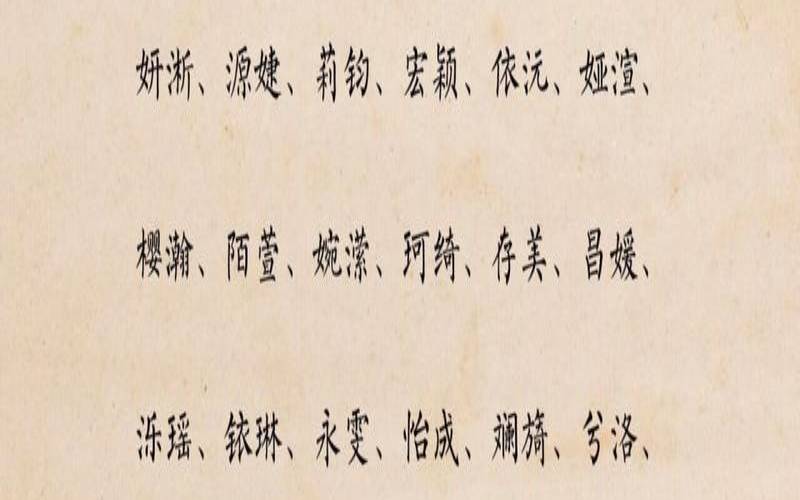 妍淅、源婕、莉钧、宏颖、依沅、娅渲、
樱瀚、陌萱、婉潆、珂绮、存美、昌媛、
泺瑶、铱琳、永雯、怡成、斓旖、兮洛、